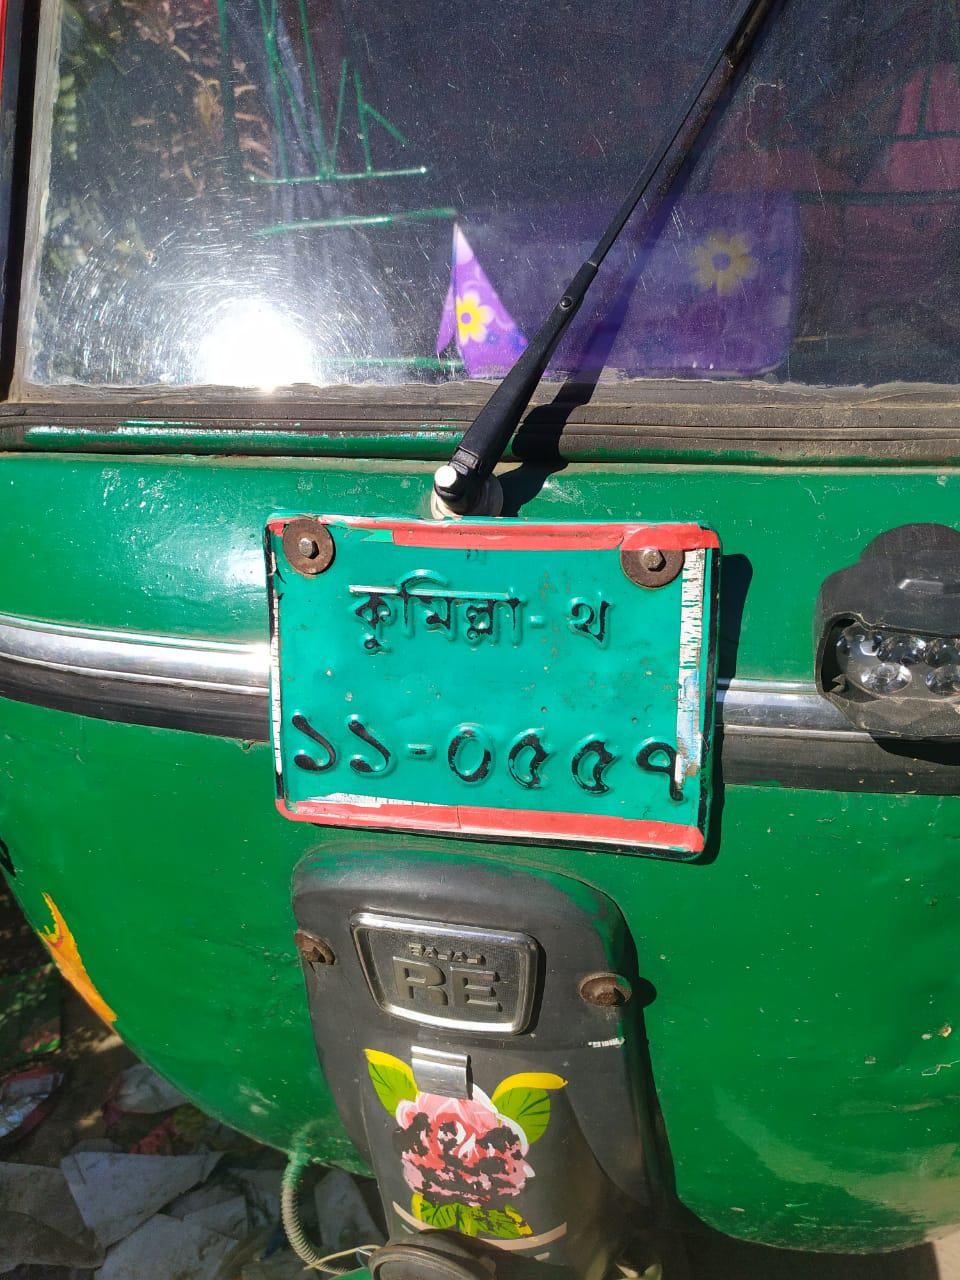 কুমিল্লা-থ
১১-০৫৫৭
BAJAJ
RE